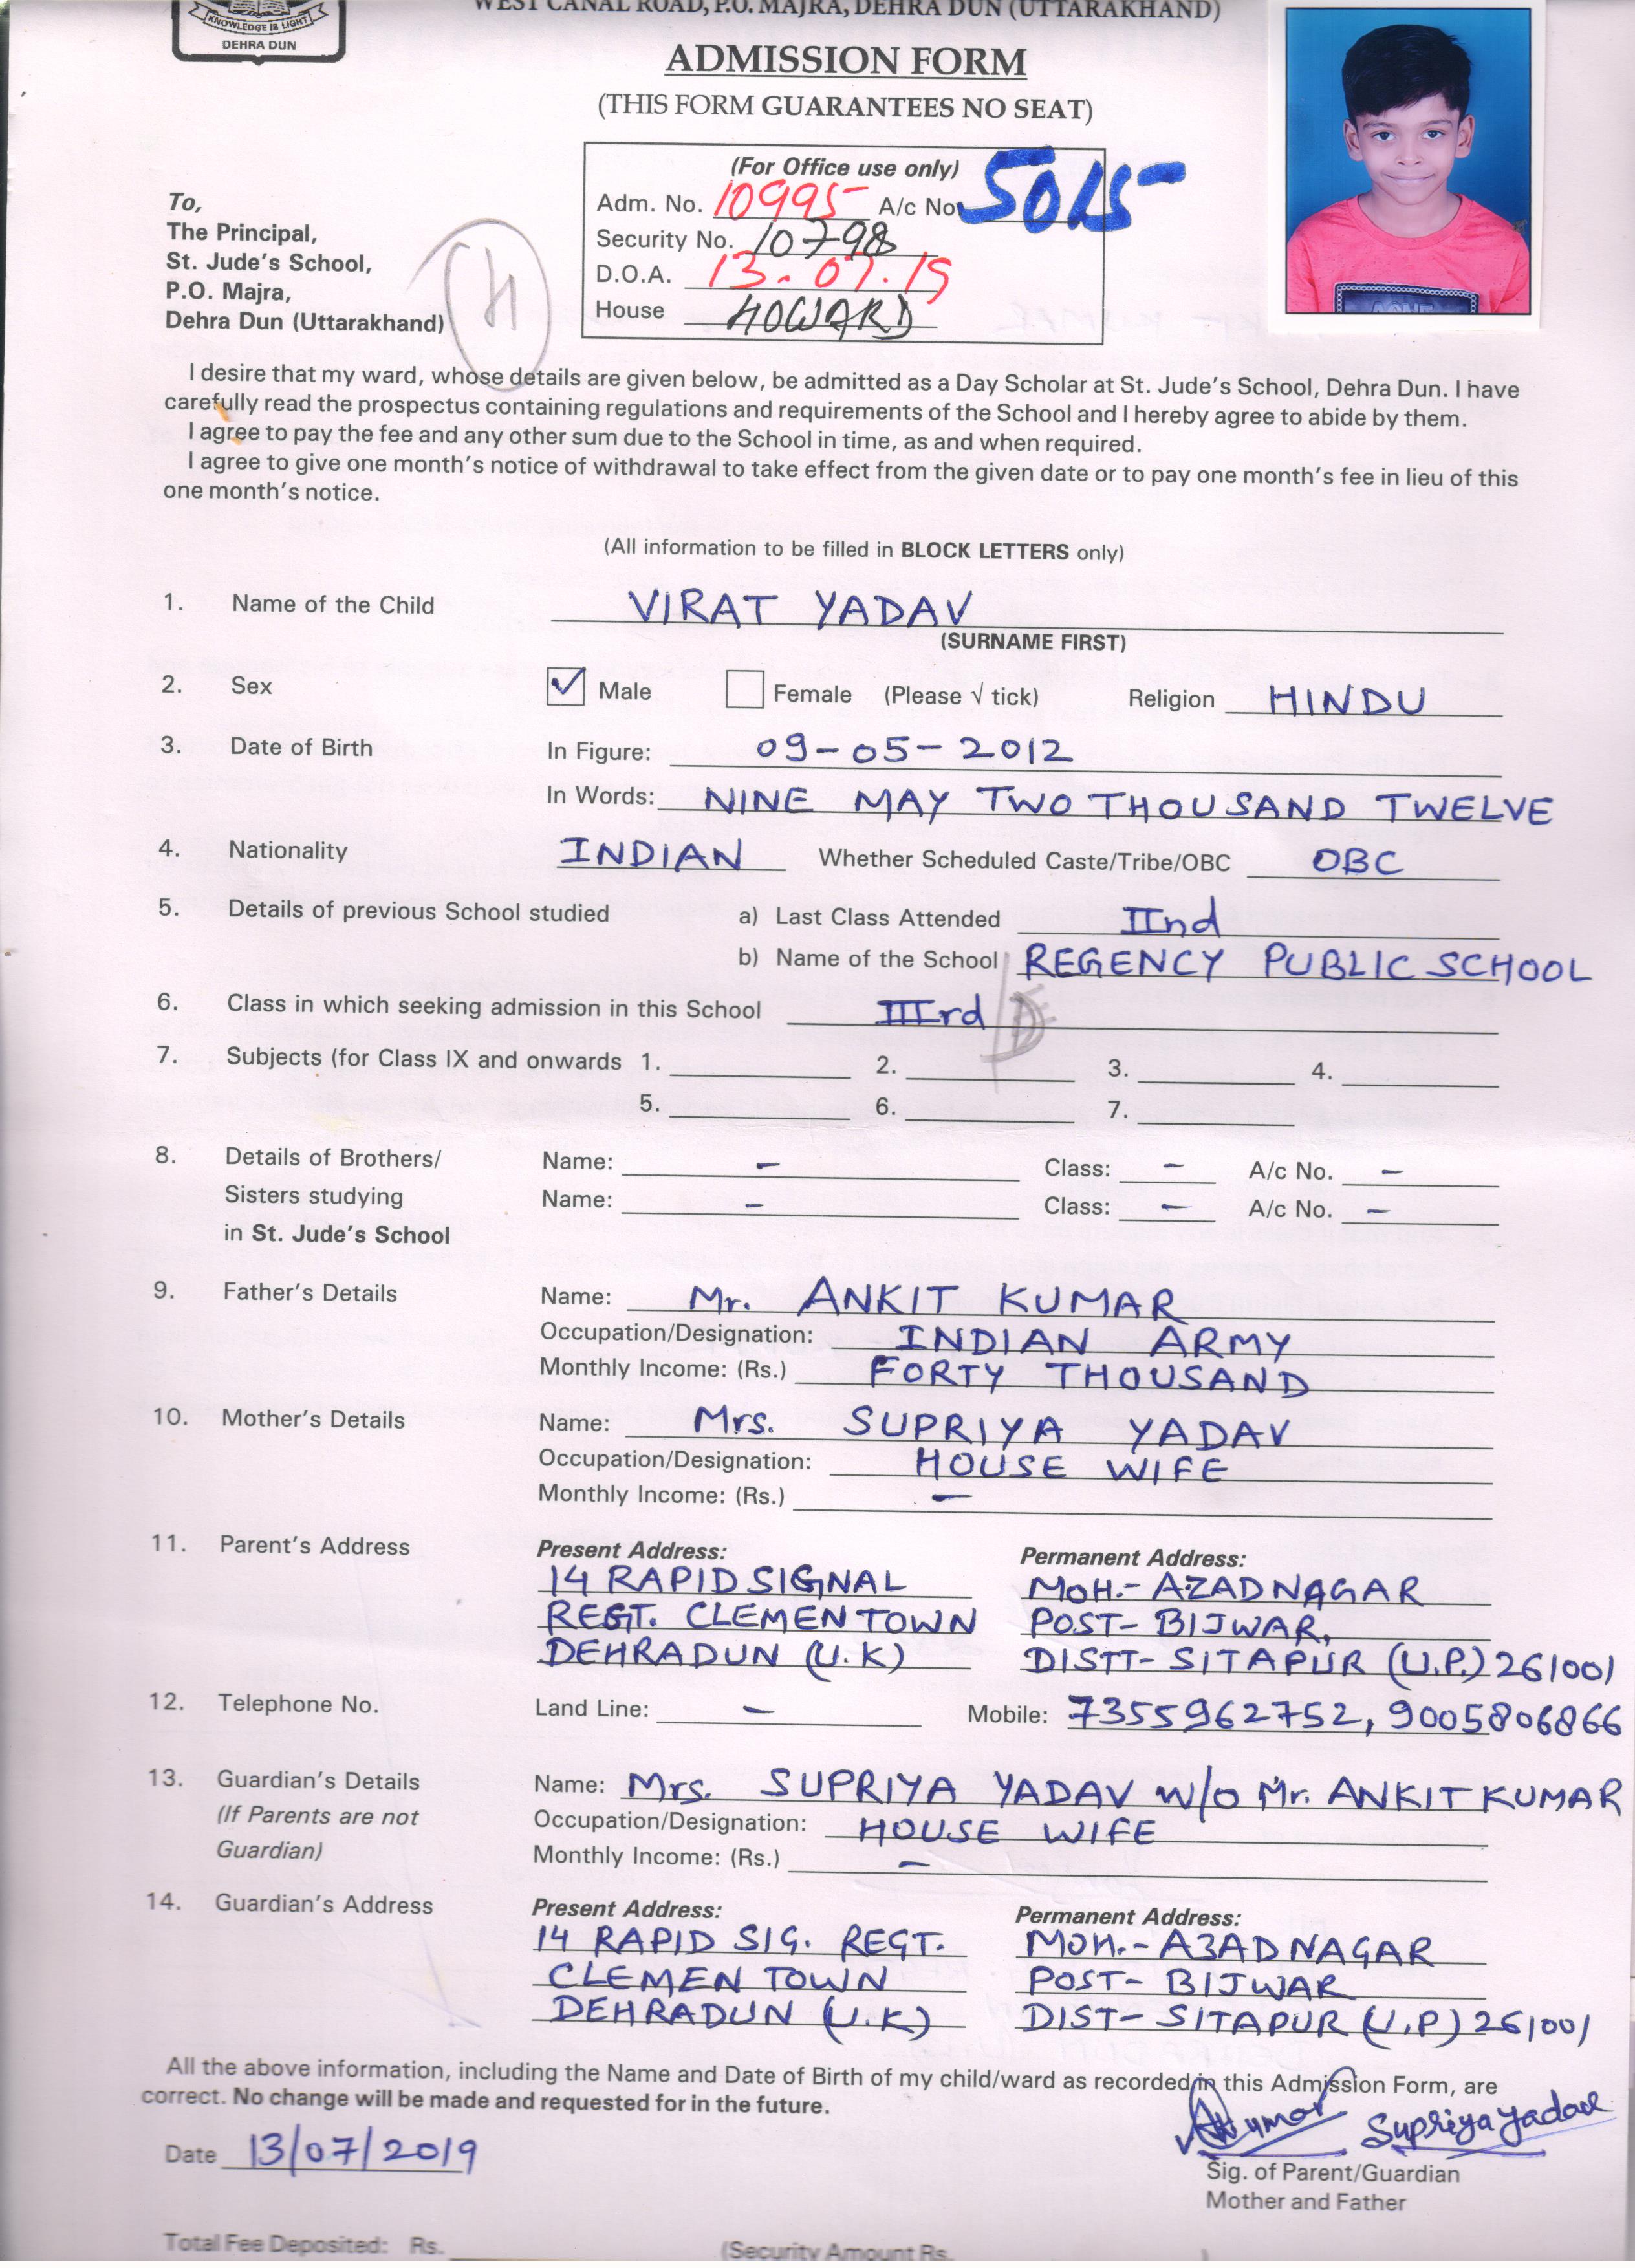 WEST CANAL ROAD, P.O. MAJRA, DEHRA DUN (UTTARAKHAND)
KNOWLEDGE IS LIGHT
DEHRA DUN
ADMISSION FORM
(THIS FORM GUARANTEES NO SEAT)
(For Office use only)
Adm. No. 10995 A/c No. 5015
Security No. 10798
D.O.A. 13.07.19
House HOWARD
To,
The Principal,
St. Jude's School,
P.O. Majra,
Dehra Dun (Uttarakhand)
H
I desire that my ward, whose details are given below, be admitted as a Day Scholar at St. Jude's School, Dehra Dun. I have
carefully read the prospectus containing regulations and requirements of the School and I hereby agree to abide by them.
I agree to pay the fee and any other sum due to the School in time, as and when required.
I agree to give one month's notice of withdrawal to take effect from the given date or to pay one month's fee in lieu of this
one month's notice.
(All information to be filled in BLOCK LETTERS only)
1. Name of the Child VIRAT YADAV
(SURNAME FIRST)
2. Sex ✓ Male Female (Please √ tick) Religion HINDU
3. Date of Birth In Figure: 09-05-2012
In Words: NINE MAY TWO THOUSAND TWELVE
4. Nationality INDIAN Whether Scheduled Caste/Tribe/OBC OBC
5. Details of previous School studied a) Last Class Attended IInd
b) Name of the School REGENCY PUBLIC SCHOOL
6. Class in which seeking admission in this School IIIrd D
7. Subjects (for Class IX and onwards 1. 2. 3. 4.
5. 6. 7.
8. Details of Brothers/ Name: - Class: - A/c No. -
Sisters studying Name: - Class: - A/c No. -
in St. Jude's School
9. Father's Details Name: Mr. ANKIT KUMAR
Occupation/Designation: INDIAN ARMY
Monthly Income: (Rs.) FORTY THOUSAND
10. Mother's Details Name: Mrs. SUPRIYA YADAV
Occupation/Designation: HOUSE WIFE
Monthly Income: (Rs.) -
11. Parent's Address Present Address: Permanent Address:
14 RAPID SIGNAL MOH.- AZAD NAGAR
REGT. CLEMEN TOWN POST- BIJWAR,
DEHRADUN (U.K) DISTT- SITAPUR (U.P.) 261001
12. Telephone No. Land Line: - Mobile: 7355962752, 9005806866
13. Guardian's Details Name: Mrs. SUPRIYA YADAV W/o Mr. ANKIT KUMAR
(If Parents are not Occupation/Designation: HOUSE WIFE
Guardian) Monthly Income: (Rs.) -
14. Guardian's Address Present Address: Permanent Address:
14 RAPID SIG. REGT. MOH.- AZAD NAGAR
CLEMEN TOWN POST- BIJWAR
DEHRADUN (U.K) DIST- SITAPUR (U.P) 261001
All the above information, including the Name and Date of Birth of my child/ward as recorded in this Admission Form, are
correct. No change will be made and requested for in the future.
Akumar Supriya yadav
Date 13/07/2019
Sig. of Parent/Guardian
Mother and Father
Total Fee Deposited: Rs. (Security Amount Rs.